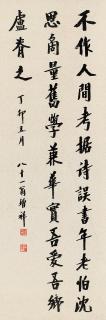 不作人間考据詩誤書年老怕沈
思商量舊學兼華實吾愛吾鄉
盧脊之 丁卯五月 八十一翁增祥